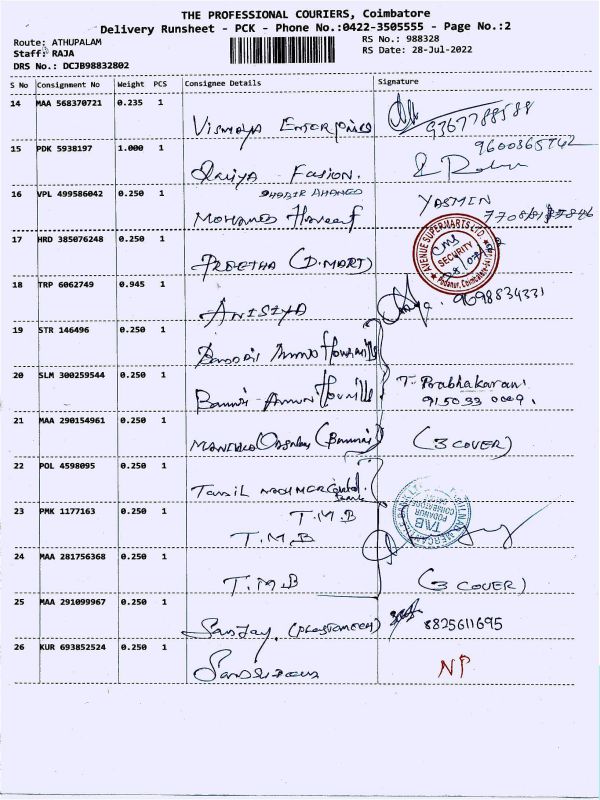 THE PROFESSIONAL COURIERS, Coimbatore
Delivery Runsheet - PCK - Phone No.:0422-3505555 - Page No.:2
Route: ATHUPALAM
RS No.: 988328
Staff: RAJA
RS Date: 28-Jul-2022
DRS No.: DCJB98832802
S No Consignment No Weight PCS Consignee Details Signature
14 MAA 568370721 0.235 1
VISMAYA ENTERPRISES 9367788588
15 PDK 5938197 1.000 1 9600365742
Fasion.
16 VPL 499586042 0.250 1 SHABIR AHAMED YASMIN
MOHAMED Haneef
17 HRD 385076248 0.250 1
PREETHA (D.MART)
AVENUE SUPERMARTS LTD. SECURITY Podanur, Coimbatore
18 TRP 6062749 0.945 1
ANISIYA 9698834331
19 STR 146496 0.250 1
20 SLM 300259544 0.250 1 T. Prabhakaran
Bannari Amman 915033 0009.
21 MAA 290154961 0.250 1
(Bannari) (3 COVER)
22 POL 4598095 0.250 1
Tamil
23 PMK 1177163 0.250 1 T.M.B
T.M.B
TMB PODANUR COIMBATORE
24 MAA 281756368 0.250 1
T.M.B (3 COVER)
25 MAA 291099967 0.250 1
Sanjay. (PLASTOMECH) 8825611695
26 KUR 693852524 0.250 1
NP